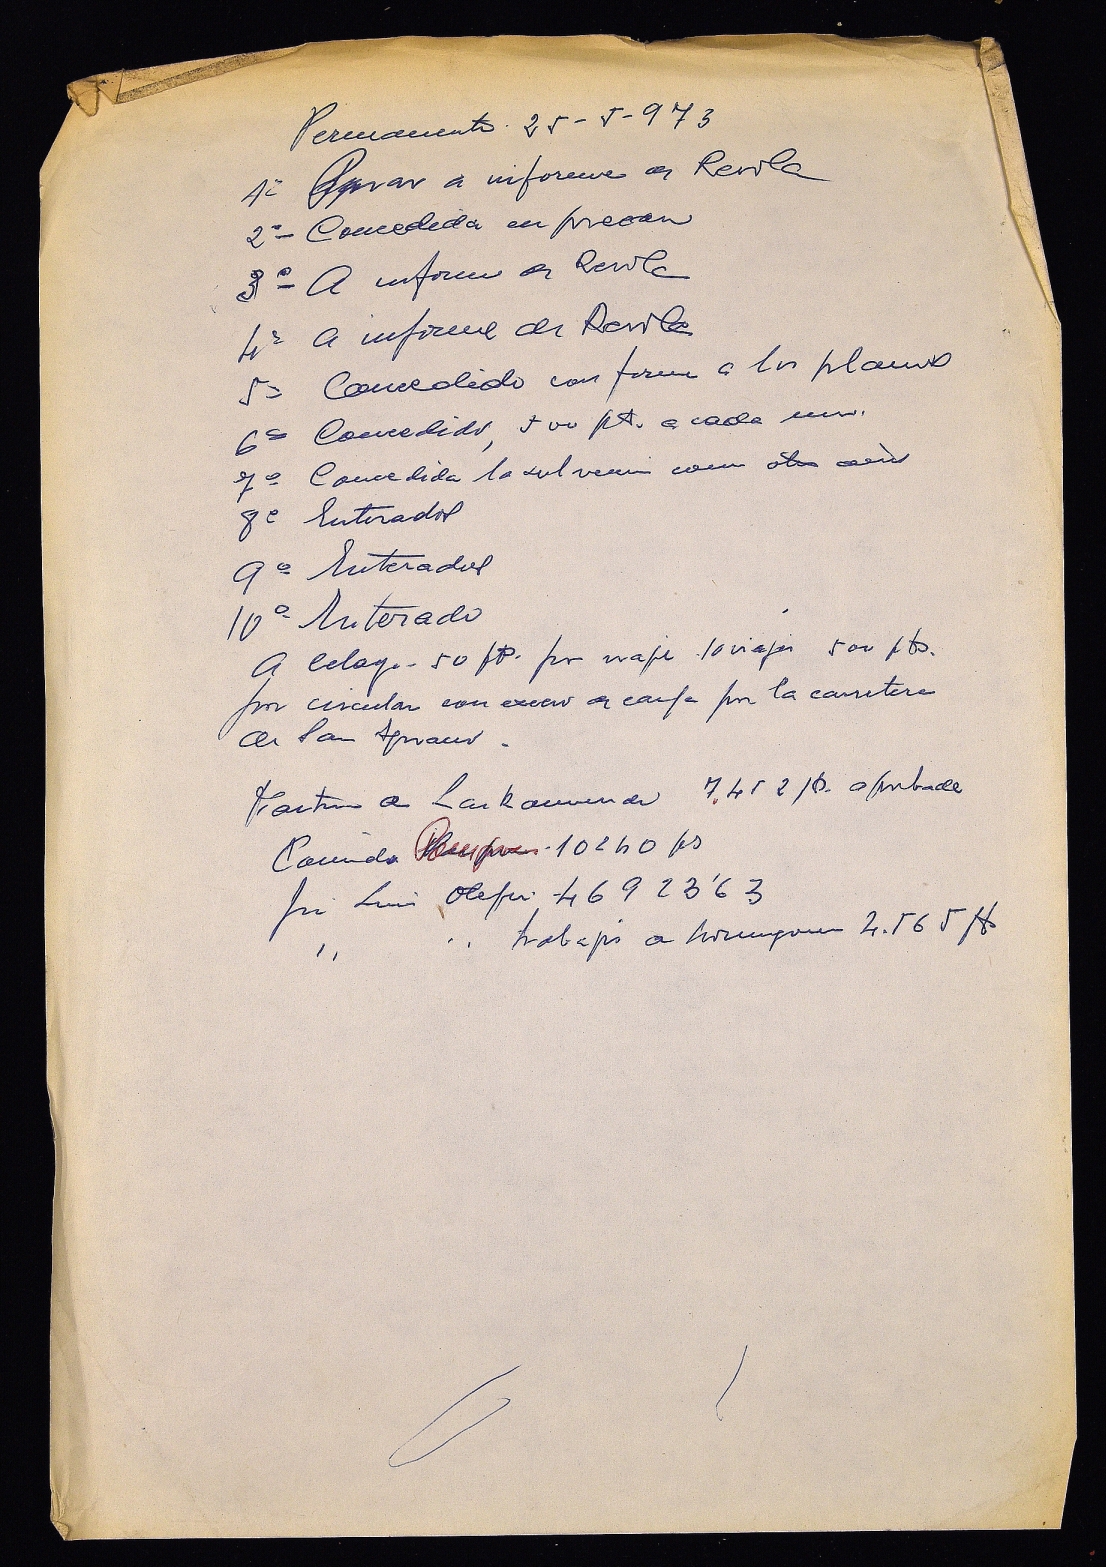 Permanente 25-5-973
1º Pasar a informe de Revila
2º- Concedida en precario
3º- A informe de Revila
4º A informe de Revila
5º Concedido conforme a los planos
6º Concedido, 500 pts. a cada uno.
7º Concedida la subvencion como otros años
8º Enterados
9º Enterados
10º Enterado
A 50 pts. por viaje 10 viajes 500 pts.
por circular con exceso de carga por la carretera
de San
Factura de 7.452 pts. aprobada
Comida 10240 pts
José Luis 46923'63
,, ,, trabajos de 2.565 pts